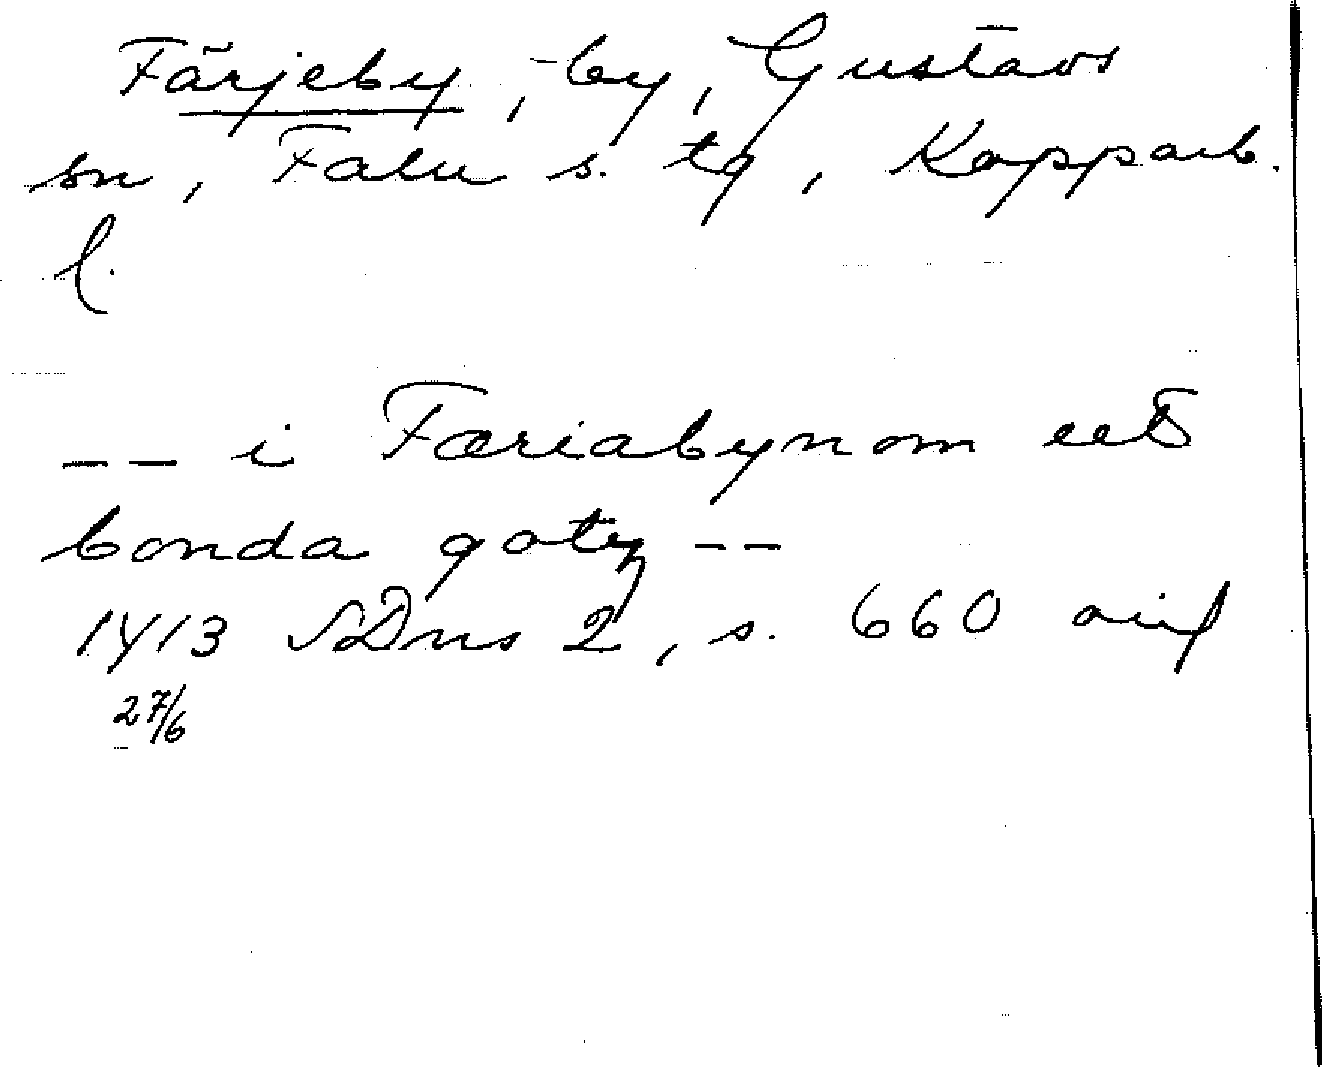 Färjeby, by, Gustavs
sn, Falu s. tg, Kopparb.
l.
-- i Færiabynom eet
bonda gotz --
1413 SDns 2, s. 660 avs
27/6